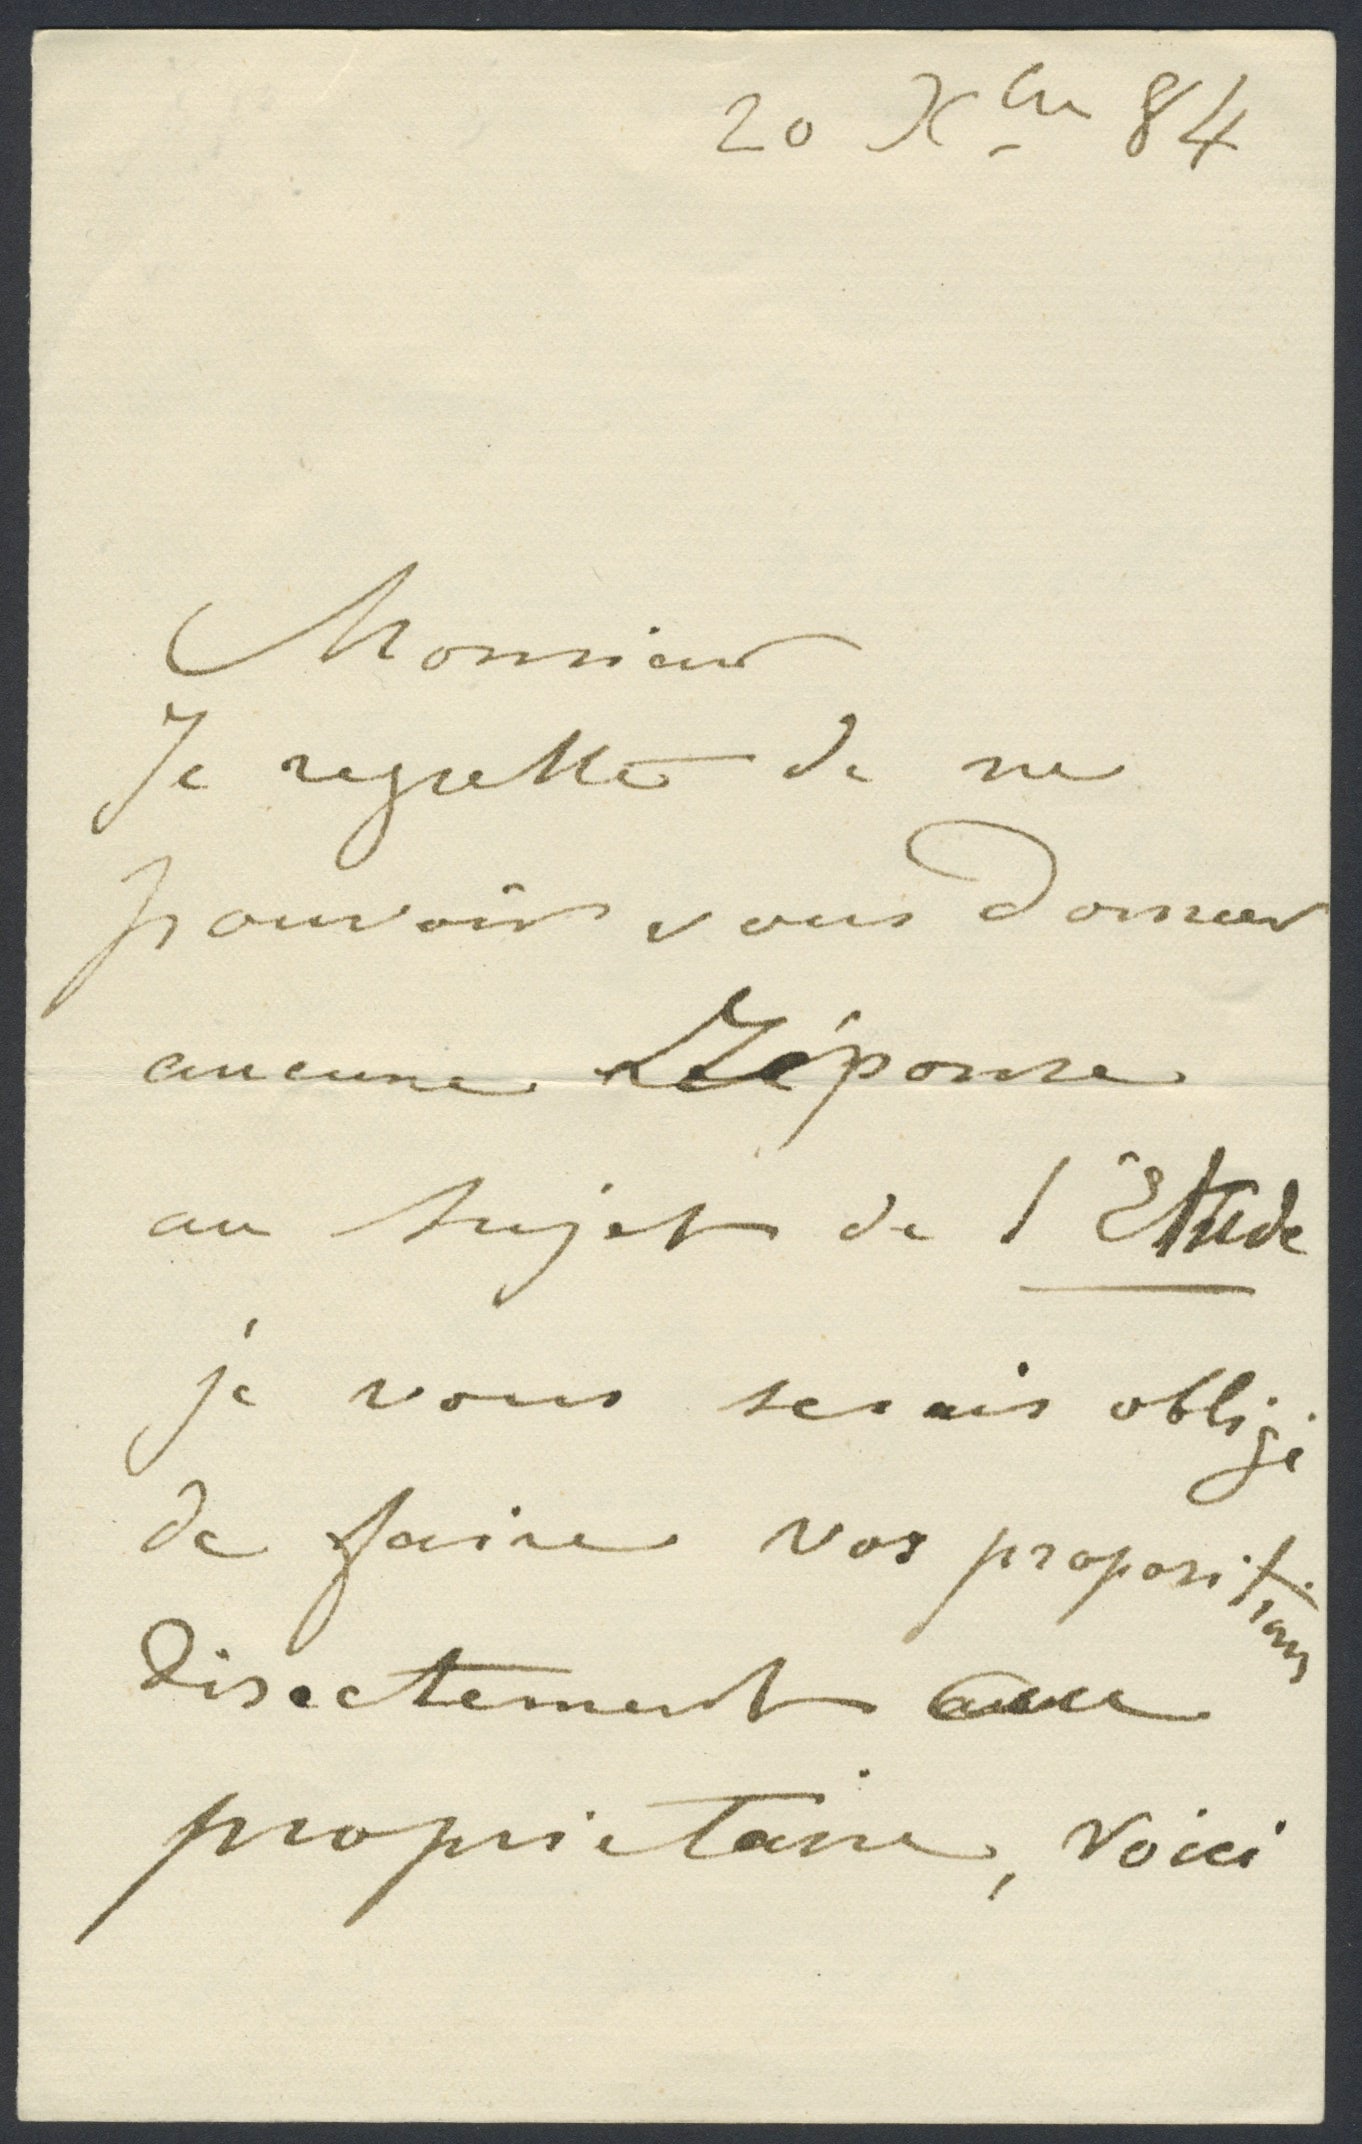 20 Xbre 84
Monsieur
Je regrette de ne
pouvoir vous donner
aucune Réponse
au sujet de l'Etude
je vous serais obligé
de faire vos propositions
directement au
propriétaire, voici